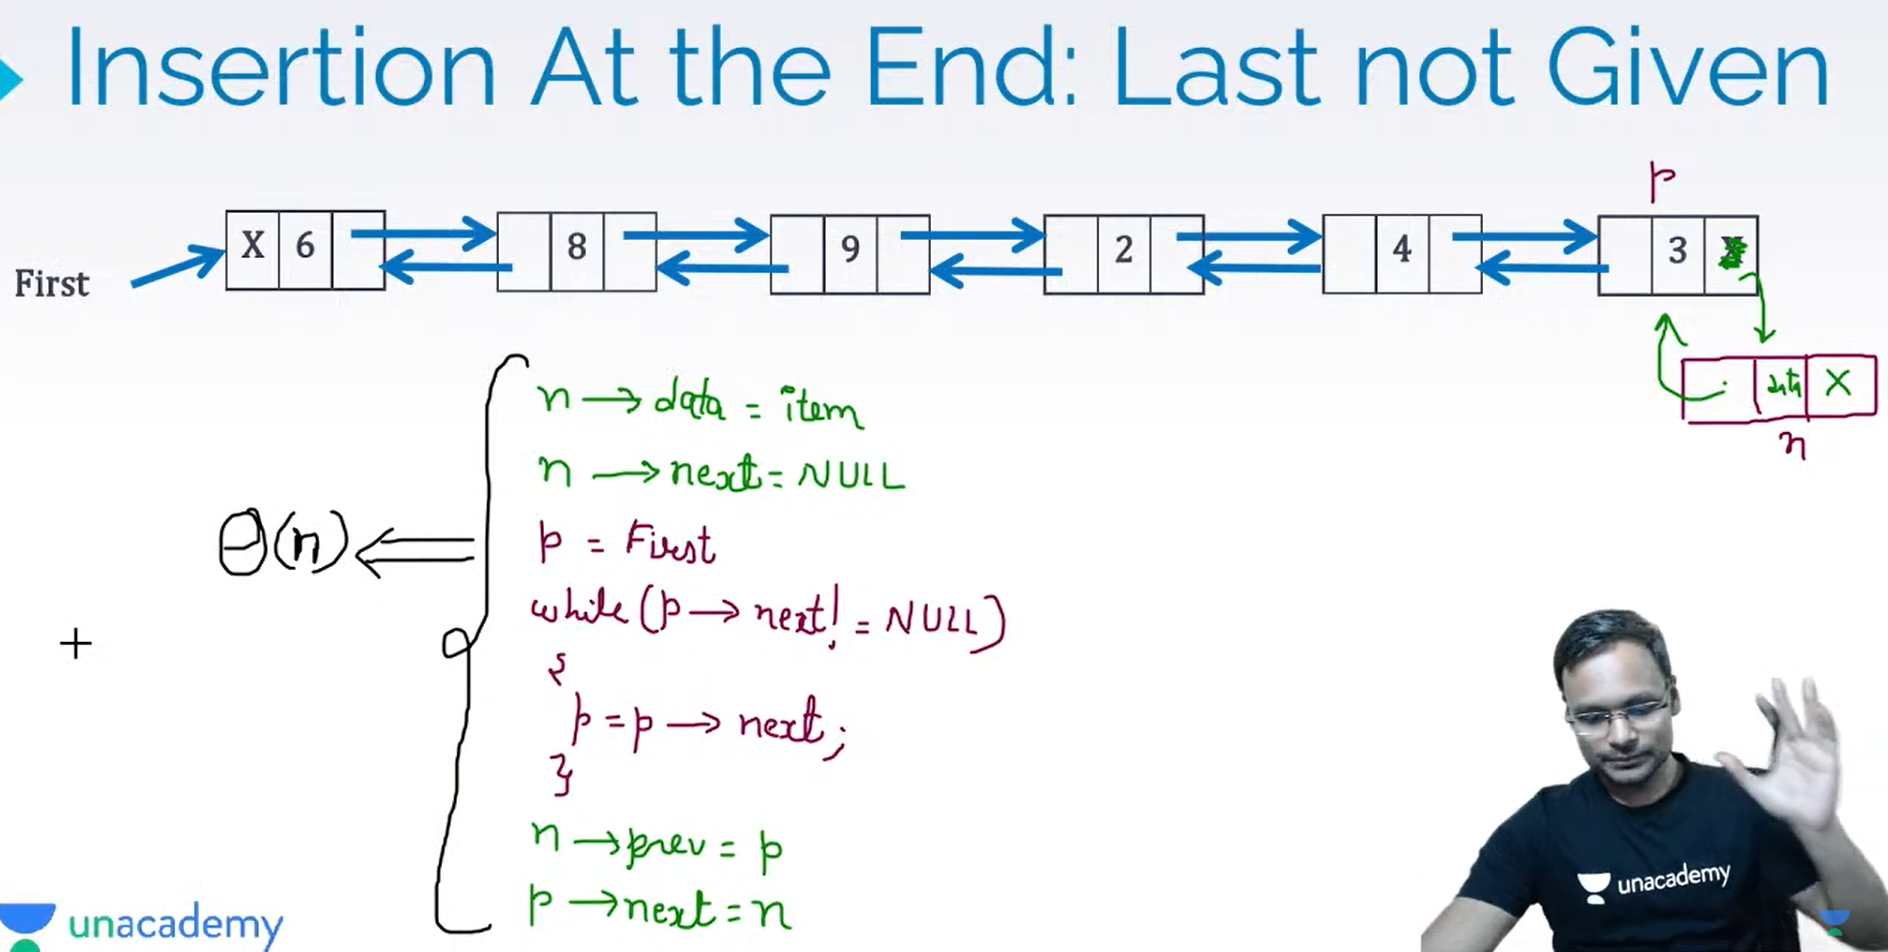 Insertion At the End: Last not Given
p
First X 6 8 9 2 4 3
data X
n
n → data = item
n → next = NULL
p = First
while (p → next != NULL)
{
p = p → next;
}
n → prev = p
p → next = n
θ(n) ⇐
+
unacademy
unacademy